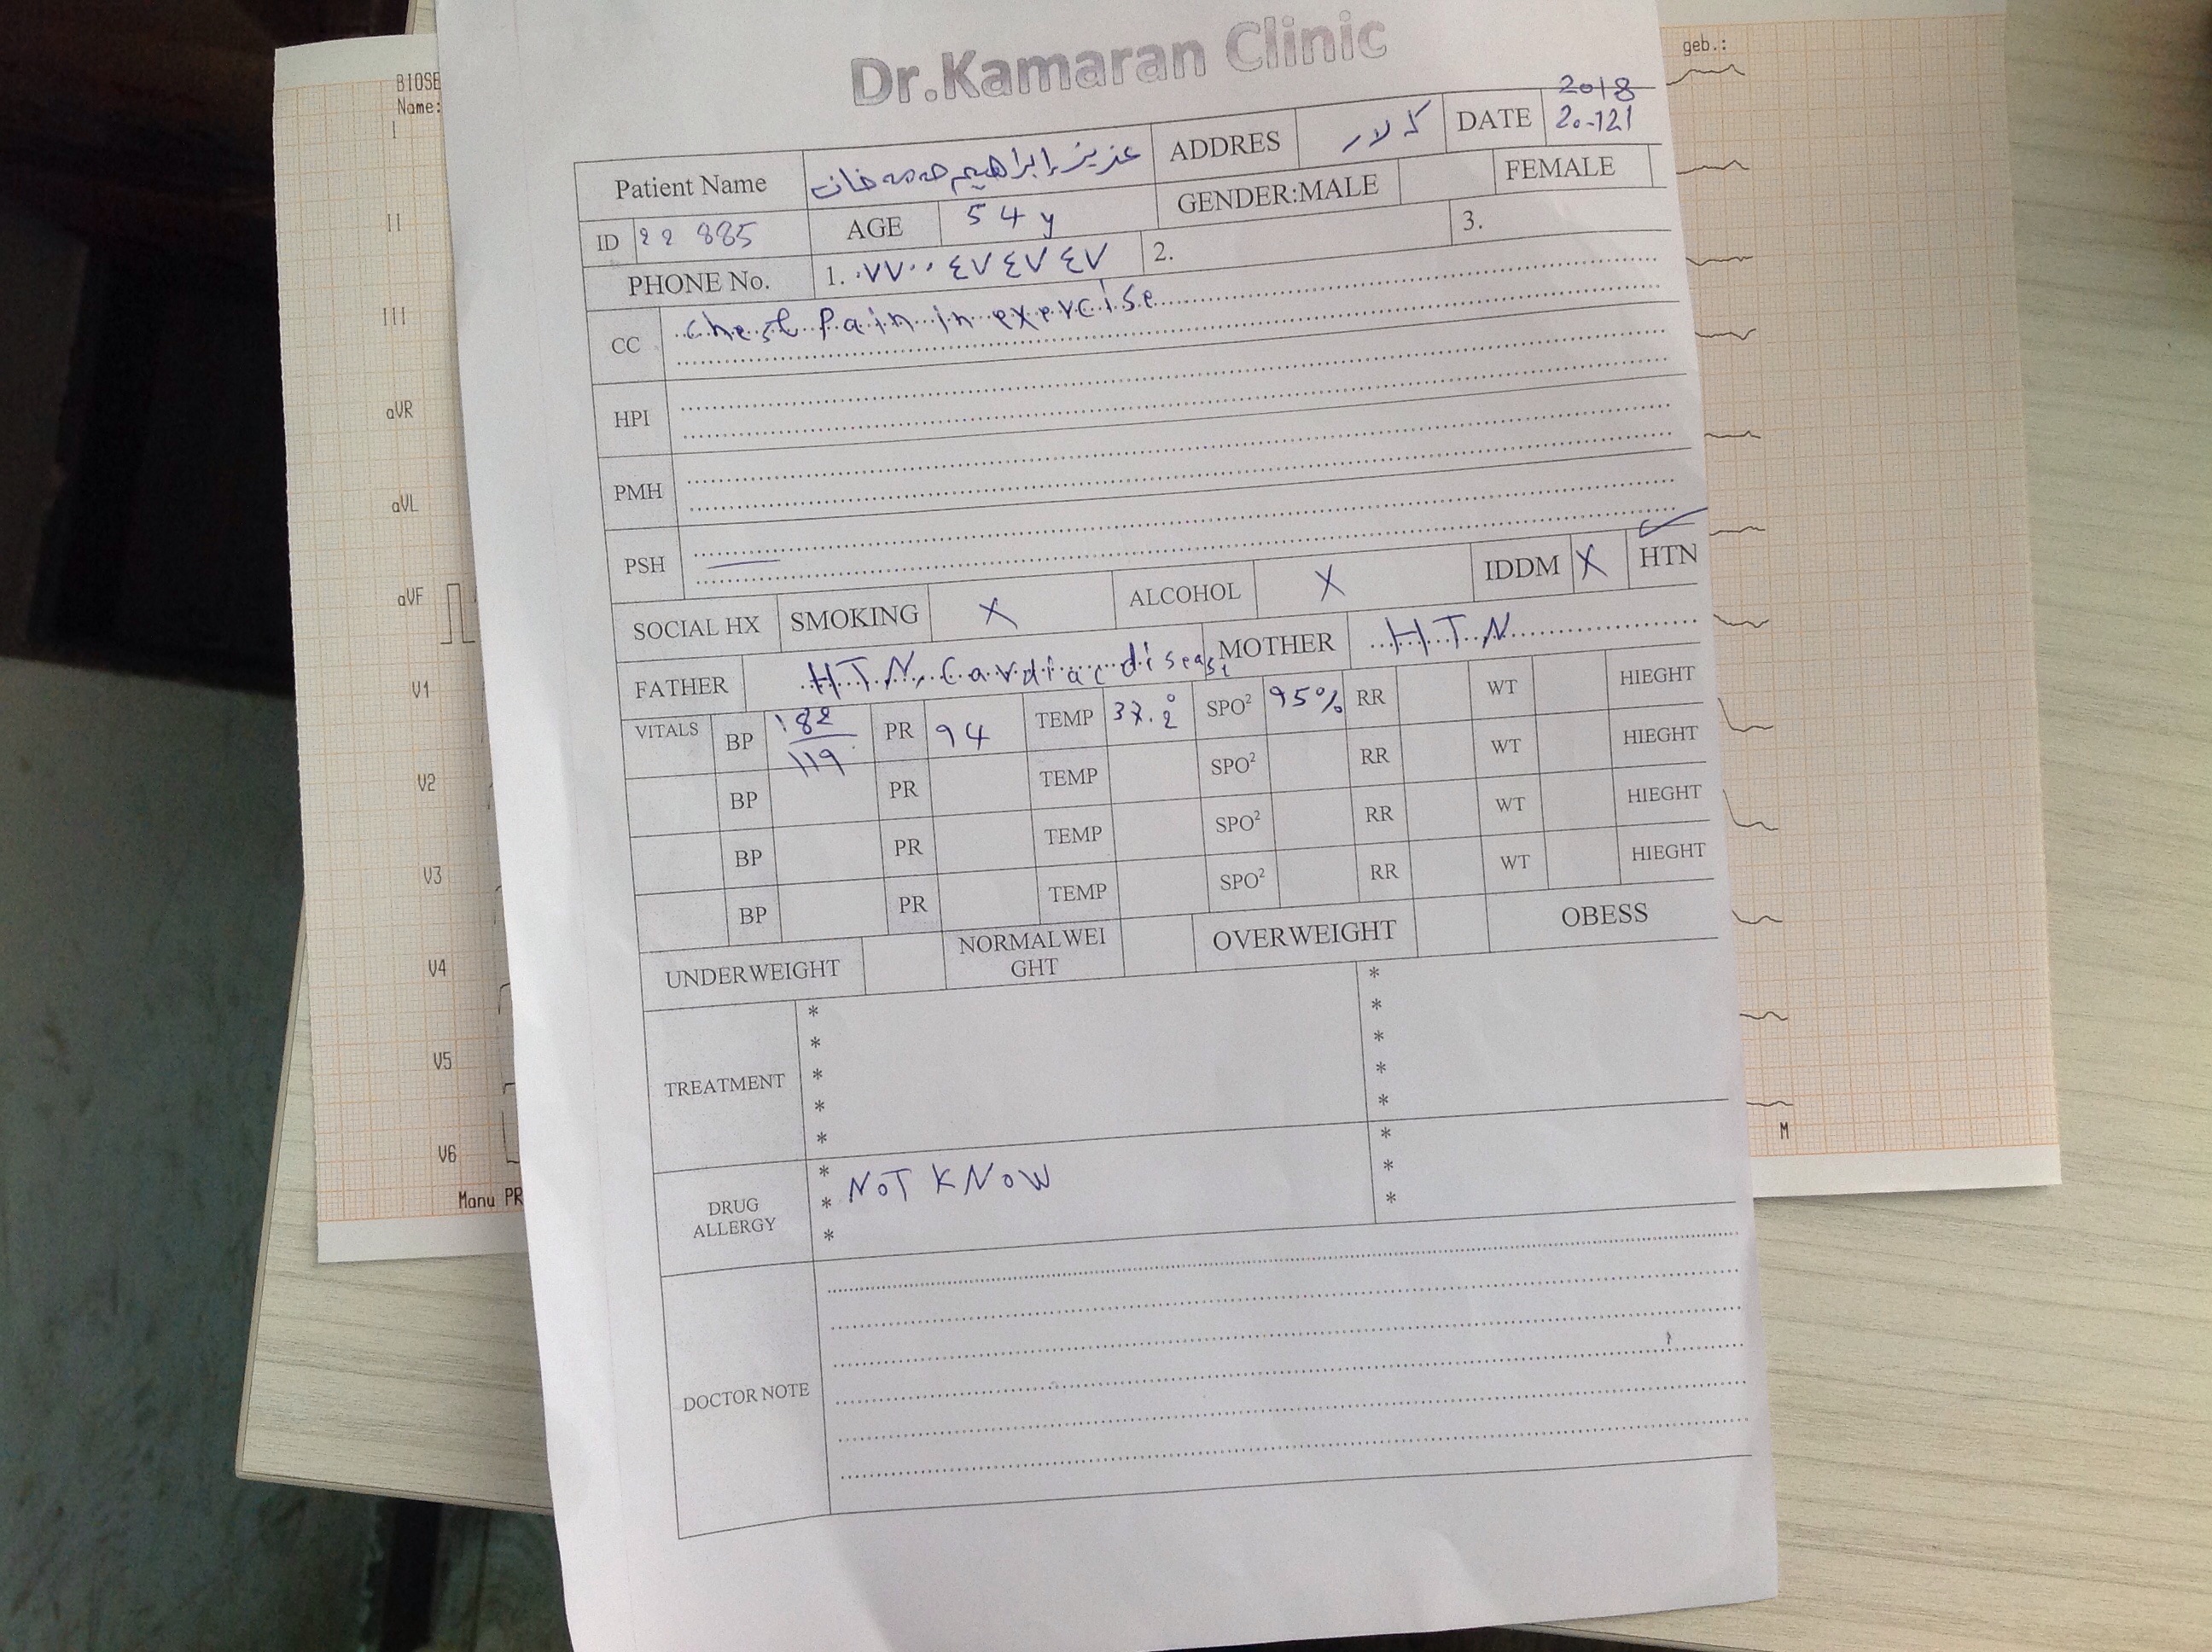 Dr.Kamaran Clinic
Patient Name عزیز إبراهیم حەمە خان ADDRES کەلار DATE 2018 20-121
ID 22 885 AGE 54 y GENDER:MALE FEMALE
PHONE No. 1. ٠٧٧٠٠ ٤٧ ٤٧ ٤٧ 2. 3.
CC chest pain in exercise
HPI
PMH
PSH
SOCIAL HX SMOKING X ALCOHOL X IDDM X HTN ✓
FATHER HTN, Cardiac diseas MOTHER HTN
VITALS BP 182/119 PR 94 TEMP 37.2° SPO² 95% RR WT HIEGHT
BP PR TEMP SPO² RR WT HIEGHT
BP PR TEMP SPO² RR WT HIEGHT
BP PR TEMP SPO² RR WT HIEGHT
UNDERWEIGHT NORMALWEI
GHT OVERWEIGHT OBESS
TREATMENT * *
* *
* *
* *
* *
DRUG
ALLERGY * NOT KNOW *
* *
* *
DOCTOR NOTE
BIOSE
Name:
I
II
III
aVR
aVL
aVF
V1
V2
V3
V4
V5
V6
Manu PR
geb.:
M